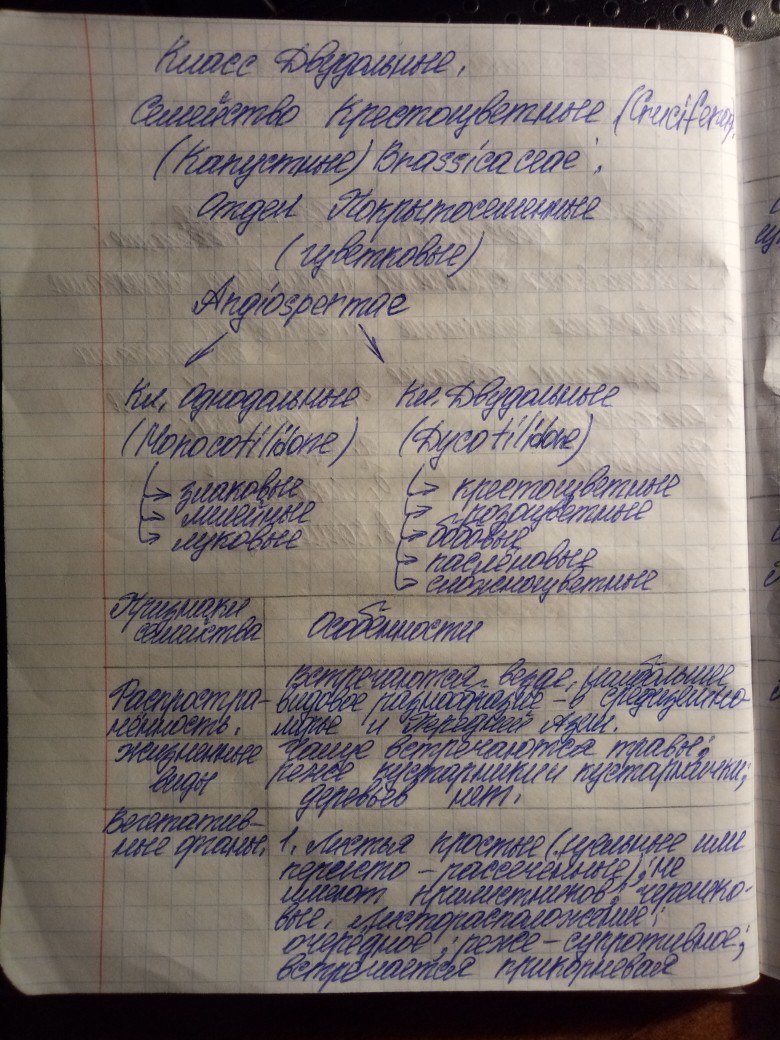 Класс Двудольные,
Семейство Крестоцветные (Cruciferae,
(Капустные) Brassicaceae.
Отдел Покрытосеменные
(цветковые)
Angiospermae
Кл. Однодольные
(Monocotilidone)
злаковые
лилейные
луковые
Кл. Двудольные
(Dycotilidone)
крестоцветные
розоцветные
бобовые
паслёновые
сложноцветные
Признаки
семейства
Особенности
Распростра-
нённость.
Встречаются везде, наибольшее
видовое разнообразие - в средиземно-
морье и Передней Азии.
Жизненные
виды
Чаще встречаются травы;
реже кустарники и кустарнички;
деревьев нет.
Вегетатив-
ные органы.
1. Листья простые (цельные или
перисто - рассечённые); не
имеют прилистников; черешко-
вые. Листорасположение:
очерёдное; реже - супротивное;
встречается прикорневая